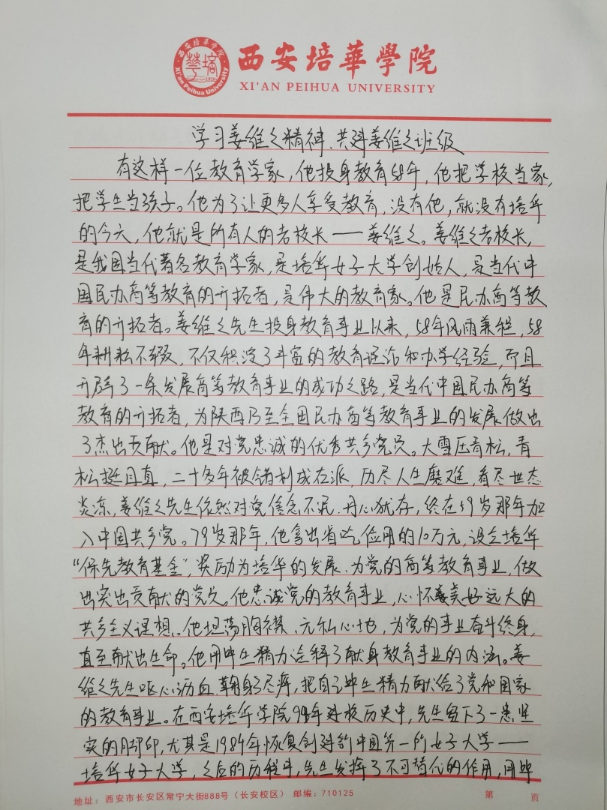 西安培華學院
XI'AN PEIHUA UNIVERSITY
学习姜维之精神、共建姜维之班级
有这样一位教育学家，他投身教育58年，他把学校当家，
把学生当孩子。他为了让更多人享受教育，没有他，就没有培华
的今天，他就是所有人的老校长——姜维之。姜维之老校长，
是我国当代著名教育学家，是培华女子大学创始人，是当代中
国民办高等教育的开拓者，是伟大的教育家。他是民办高等教
育的开拓者。姜维之先生投身教育事业以来，58年风雨兼程，58
年耕耘不辍，不仅积淀了丰富的教育理论和办学经验，而且
开辟了一条发展高等教育事业的成功之路，是当代中国民办高等
教育的开拓者，为陕西乃至全国民办高等教育事业的发展做出
了杰出贡献。他是对党忠诚的优秀共产党员。大雪压青松，青
松挺且直，二十多年被错判成右派，历尽人生磨难，看尽世态
炎凉，姜维之先生依然对党信念不泯、丹心犹存，终在59岁那年加
入中国共产党。79岁那年，他拿出省吃俭用的10万元，设立培华
“保先教育基金”，奖励为培华的发展、为党的高等教育事业，做
出突出贡献的党员。他忠诚党的教育事业，心怀美好远大的
共产主义理想。他坦荡胸襟、无私心地，为党的事业奋斗终身，
直至献出生命。他用毕生精力诠释了献身教育事业的内涵。姜
维之先生呕心沥血、鞠躬尽瘁，把自己毕生精力献给了党和国家
的教育事业。在西安培华学院94年建校历史中，先生留下了一串坚
实的脚印，尤其是1984年恢复创建的中国第一所女子大学——
培华女子大学，之后的历程中，先生发挥了不可替代的作用，用毕
地址：西安市长安区常宁大街888号（长安校区） 邮编：710125 第 页